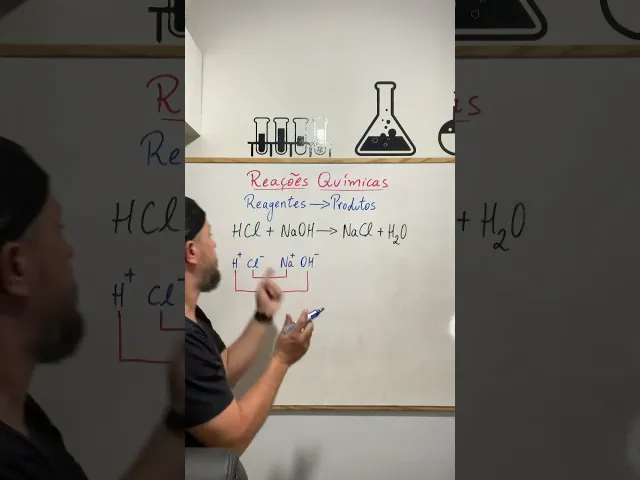 Reações Químicas
Reagentes → Produtos
HCl + NaOH → NaCl + H₂O
H⁺ Cl⁻ Na⁺ OH⁻